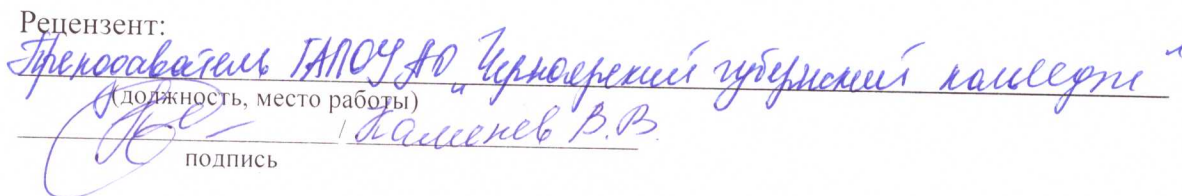 Рецензент:
Преподаватель ГАПОУ АО "Черноярский губернский колледж"
(должность, место работы)
/ Каменев В.В.
подпись